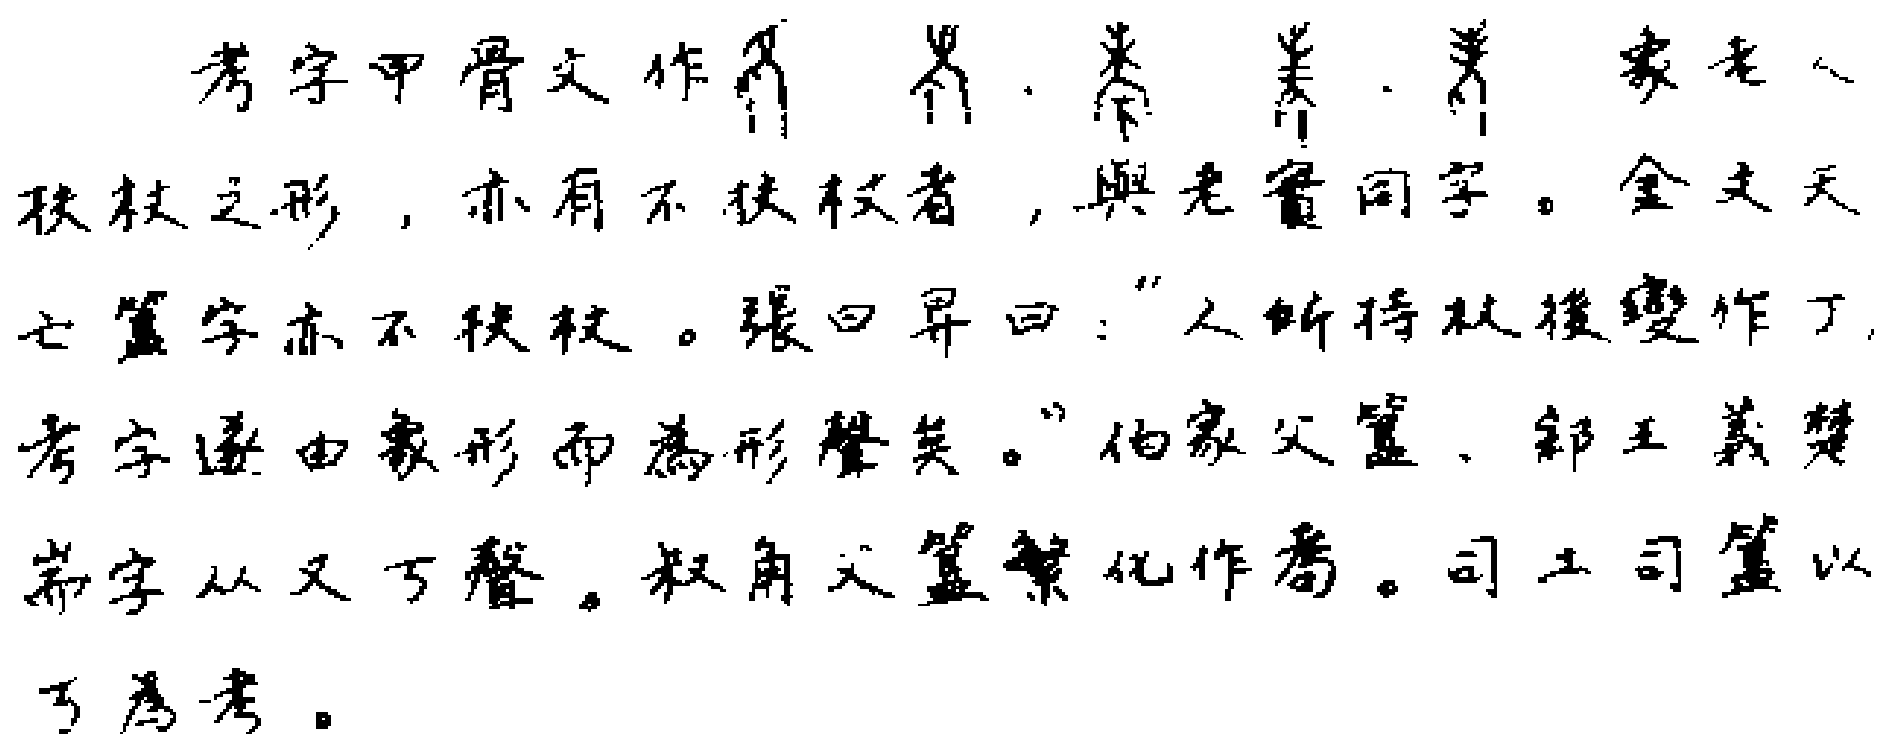 考字甲骨文作 . . 象老人
扶杖之形，亦有不扶杖者，與老實同字。金文天
亡簋字亦不扶杖。張日昇曰："人所持杖後變作丁，
考字遂由象形而為形聲矣。"伯家父簋、郐王義楚
耑字从又丂聲。叔角父簋繁化作𦒱。司土司簋以
丂為考。